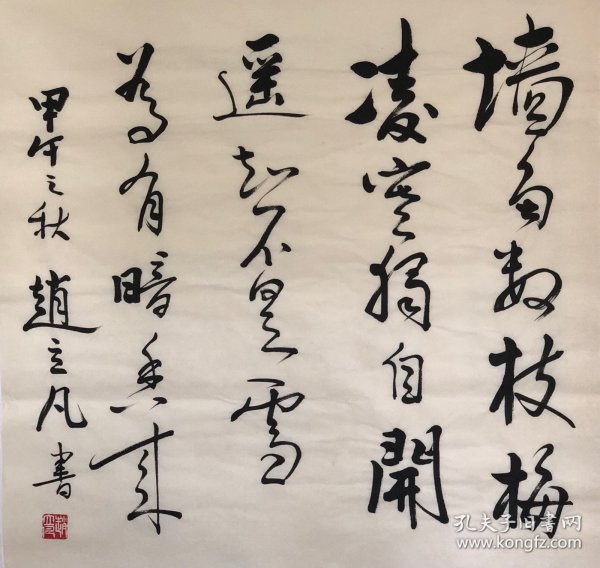 墙角数枝梅
凌寒獨自開
遥知不是雪
為有暗香来
甲午之秋 趙立凡書
孔夫子旧书网
www.kongfz.com